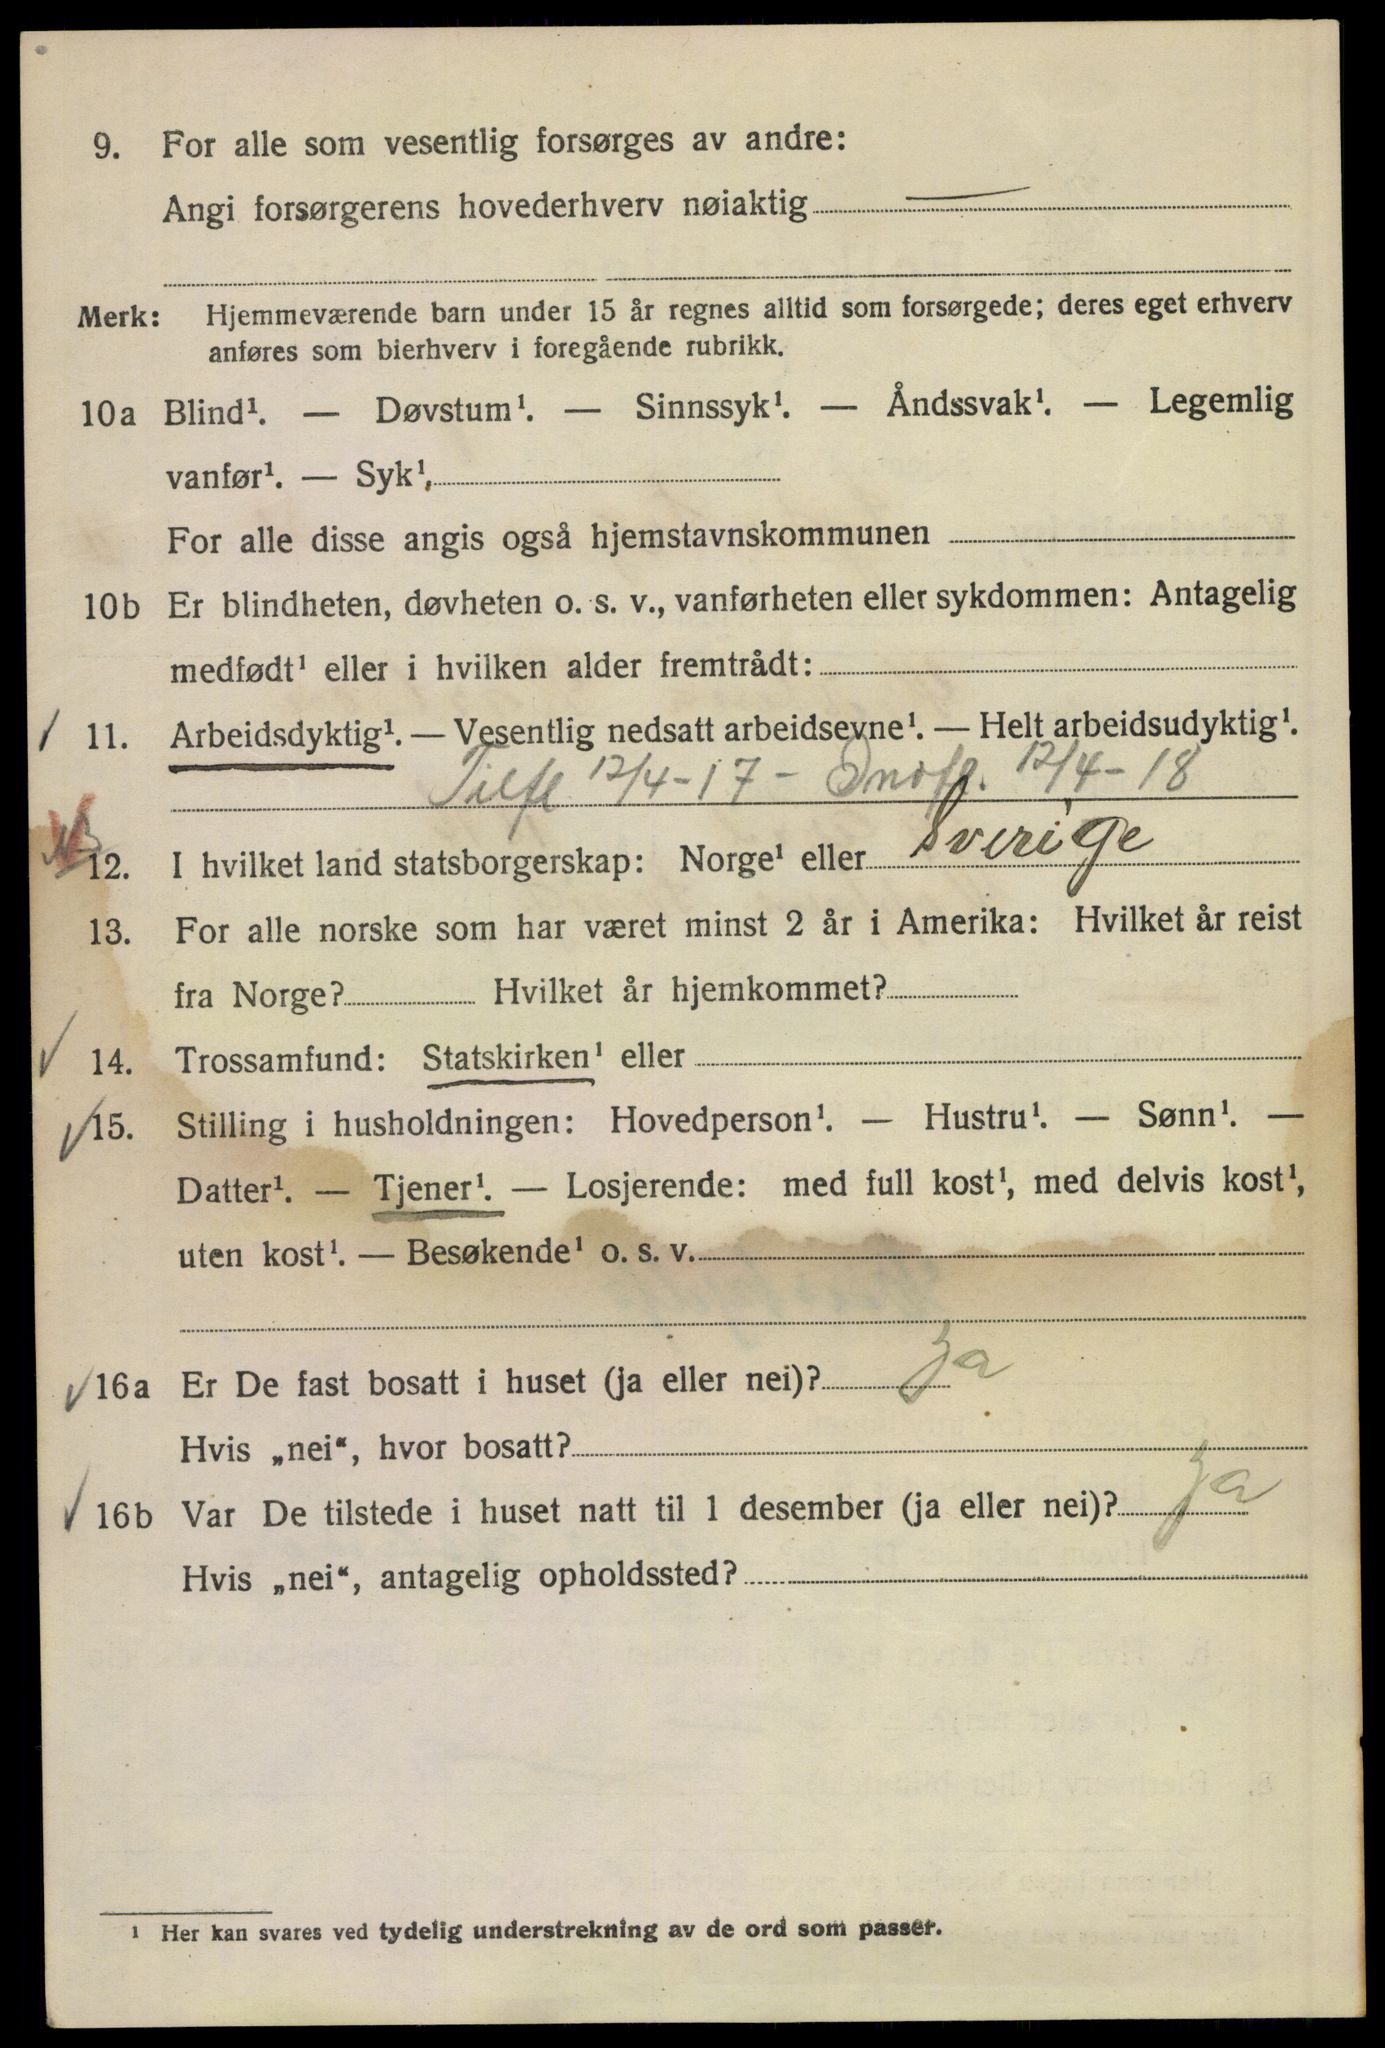 9. For alle som vesentlig forsørges av andre:
Angi forsørgerens hovederhverv nøiaktig —
Merk: Hjemmeværende barn under 15 år regnes alltid som forsørgede; deres eget erhverv
anføres som bierhverv i foregående rubrikk.
10a Blind¹. — Døvstum¹. — Sinnssyk¹. — Åndssvak¹. — Legemlig
vanfør¹. — Syk¹,
For alle disse angis også hjemstavnskommunen
10b Er blindheten, døvheten o. s. v., vanførheten eller sykdommen: Antagelig
medfødt¹ eller i hvilken alder fremtrådt:
11. Arbeidsdyktig¹. — Vesentlig nedsatt arbeidsevne¹. — Helt arbeidsudyktig¹.
Tilfl 12/4-17 - 12/4-18
NB
12. I hvilket land statsborgerskap: Norge¹ eller Sverige
13. For alle norske som har været minst 2 år i Amerika: Hvilket år reist
fra Norge? Hvilket år hjemkommet?
14. Trossamfund: Statskirken¹ eller
15. Stilling i husholdningen: Hovedperson¹. — Hustru¹. — Sønn¹. —
Datter¹. — Tjener¹. — Losjerende: med full kost¹, med delvis kost¹,
uten kost¹. — Besøkende¹ o. s. v.
16a Er De fast bosatt i huset (ja eller nei)? Ja
Hvis „nei“, hvor bosatt?
16b Var De tilstede i huset natt til 1 desember (ja eller nei)? Ja
Hvis „nei“, antagelig opholdssted?
¹ Her kan svares ved tydelig understrekning av de ord som passer.